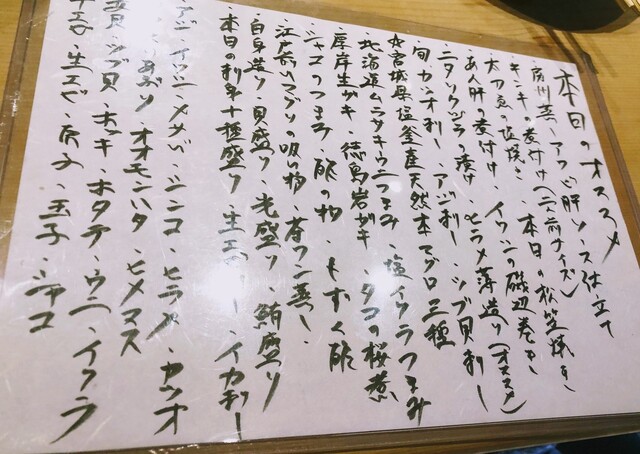 本日のオススメ
・房州蒸しアワビ肝ソース仕立て
・キンキの煮付け(二人前サイズ)
・太刀魚の塩焼き・本日の松笠焼き
・あん肝煮付け・イワシの磯辺巻き
・ニタリクジラの漬け・ヒラメ薄造り(オススメ)
・旬カツオ刺し・アジ刺し・ツブ貝刺し
☆宮城県塩釜産天然本マグロ三種
・北海道ムラサキウニつまみ・塩イクラつまみ
・厚岸生ガキ・徳島岩ガキ・タコの桜煮
・シャコのつまみ・酢の物・もずく酢
・江戸前ハマグリの吸い物・茶ワン蒸し
・白身造り・貝盛り・光盛り・鮪盛り
・本日の刺身十種盛り・生エビ刺し・イカ刺し
アジ・イワシ・〆サバ・シンコ・ヒラメ・カツオ
オオモンハタ・ヒメマス
ツブ貝・ホッキ・ホタテ・ウニ・イクラ
生エビ・玉子・シャコ